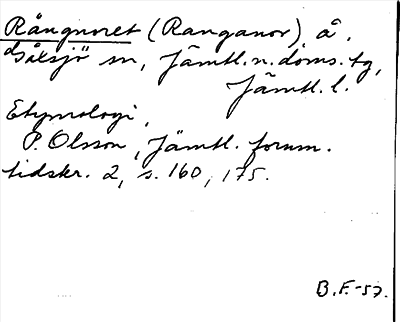 Rångnoret (Ranganor) å.
Gåxsjö sn, Jämtl. n. doms. tg,
Jämtl. l.
Etymologi,
P. Olsson, Jämtl. fornm.
tidskr. 2, s. 160, 175.
B.F.-57.